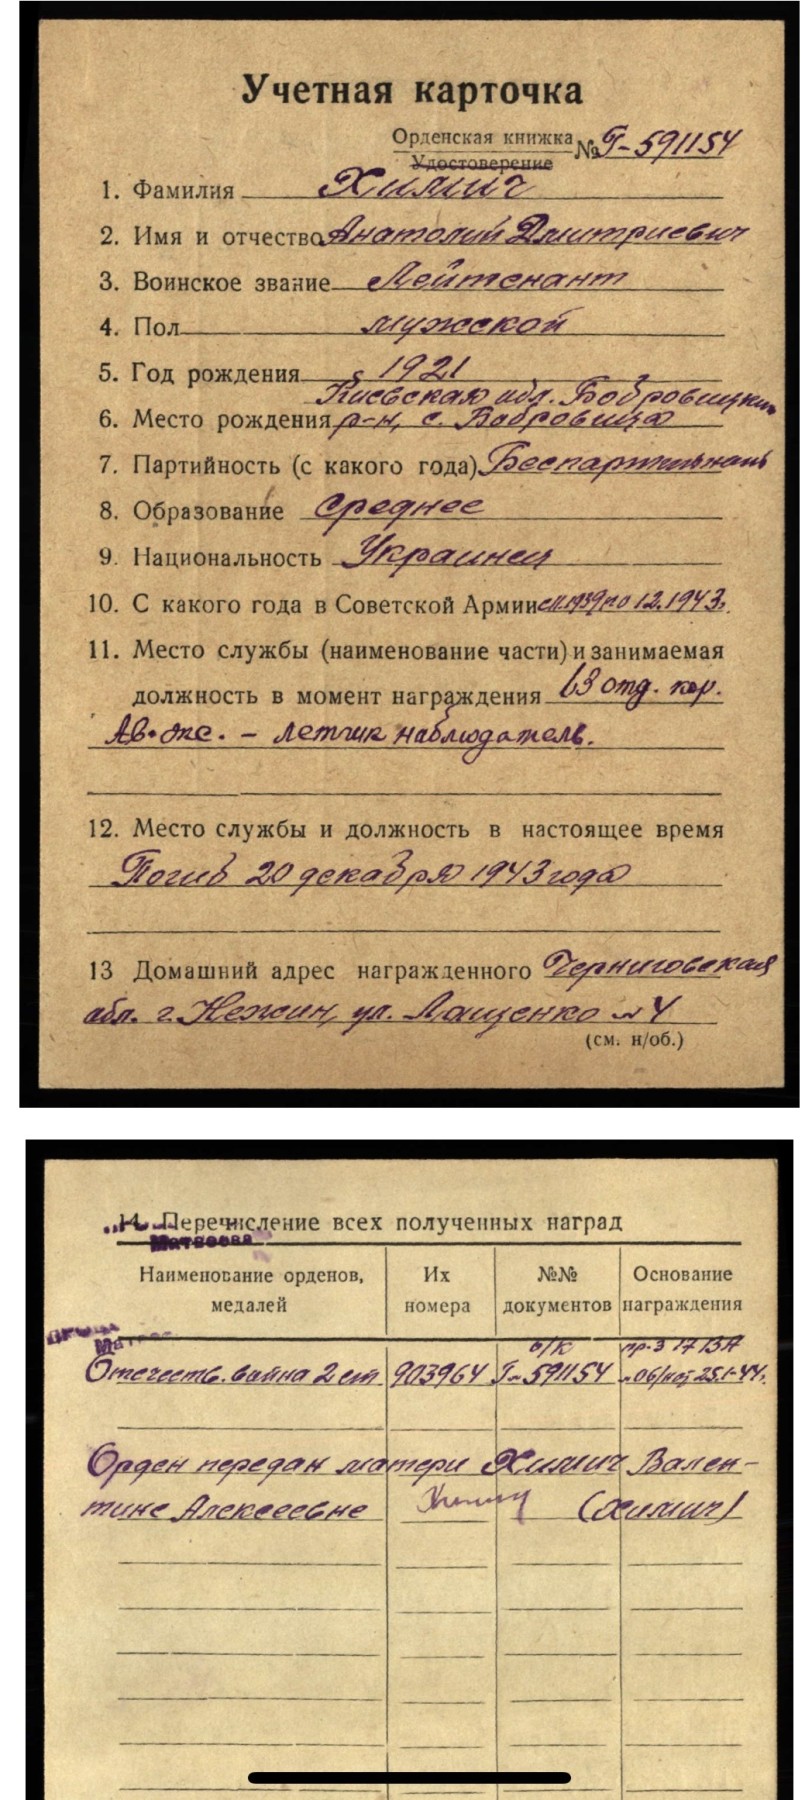 Учетная карточка
Орденская книжка
Удостоверение № Г-591154
1. Фамилия Химич
2. Имя и отчество Анатолий Дмитриевич
3. Воинское звание Лейтенант
4. Пол мужской
5. Год рождения 1921
Киевская обл. Бобровицкий
6. Место рождения р-н, с. Бобровица
7. Партийность (с какого года)
8. Образование среднее
9. Национальность Украинец
10. С какого года в Советской Армии с 11.1939 по 12.1943г.
11. Место службы (наименование части) и занимаемая
должность в момент награждения 63 отд. кор.
Ав. эс. – летчик наблюдатель.
12. Место службы и должность в настоящее время
Погиб 20 декабря 1943 года
13 Домашний адрес награжденного Черниговская
обл. г. Нежин, ул. Лащенко №4
(см. н/об.)
14. Перечисление всех полученных наград
Матвеева
Наименование орденов, медалей
Их номера
№№ документов
Основание награждения
о/к пр-з 17 ВА
Отечеств. война 2 ст. 903964 Г-591154 №06/н от 25.1-44г.
Орден передан матери Химич Вален-
тине Алексеевне (Химич)